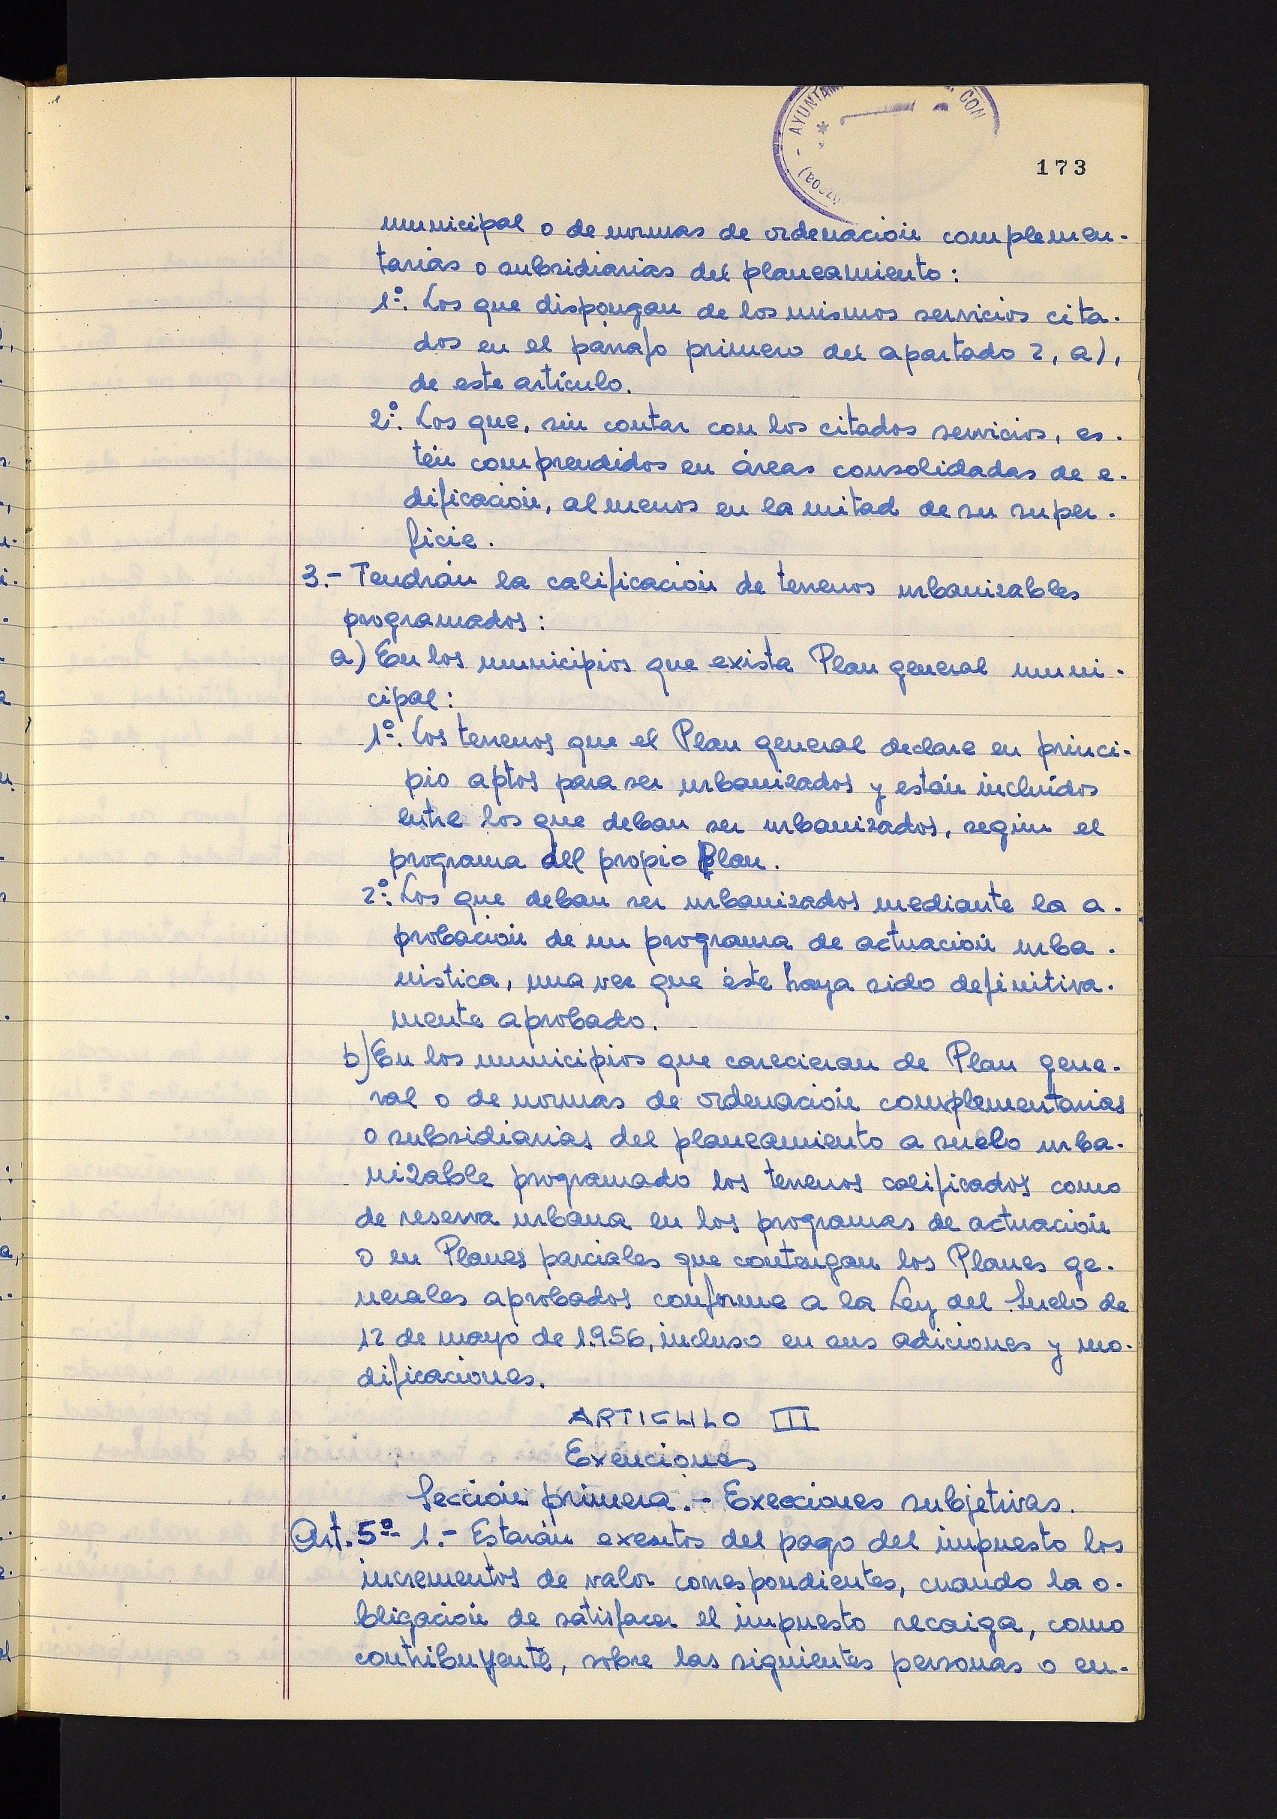 AYUNTAM CON
173
municipal o de normas de ordenación complemen-
tarias o subsidiarias del planeamiento:
1º. Los que dispongan de los mismos servicios cita-
dos en el párrafo primero del apartado 2, a),
de este artículo.
2º. Los que, sin contar con los citados servicios, es-
tén comprendidos en áreas consolidadas de e-
dificación, al menos en la mitad de su super-
ficie.
3.- Tendrán la calificación de terrenos urbanizables
programados:
a) En los municipios que exista Plan general muni-
cipal:
1º. Los terrenos que el Plan general declare en princi-
pio aptos para ser urbanizados y están incluídos
entre los que deban ser urbanizados, según el
programa del propio Plan.
2º. Los que deban ser urbanizados mediante la a-
probación de un programa de actuación urba-
nistica, una vez que éste haya sido definitiva-
mente aprobado.
b) En los municipios que carecieran de Plan gene-
ral o de normas de ordenación complementarias
o subsidiarias del planeamiento a suelo urba-
nizable programado los terrenos calificados como
de reserva urbana en los programas de actuación
o en Planes parciales que contengan los Planes ge-
nerales aprobados conforme a la Ley del Suelo de
12 de mayo de 1.956, incluso en sus adiciones y mo-
dificaciones.
ARTICULO III
Exenciones
Sección primera.- Execciones subjetivas.
Art. 5º 1.- Estarán exentos del pago del impuesto los
incrementos de valor correspondientes, cuando la o-
bligación de satisfacer el impuesto recaiga, como
contribuyente, sobre las siguientes personas o en-